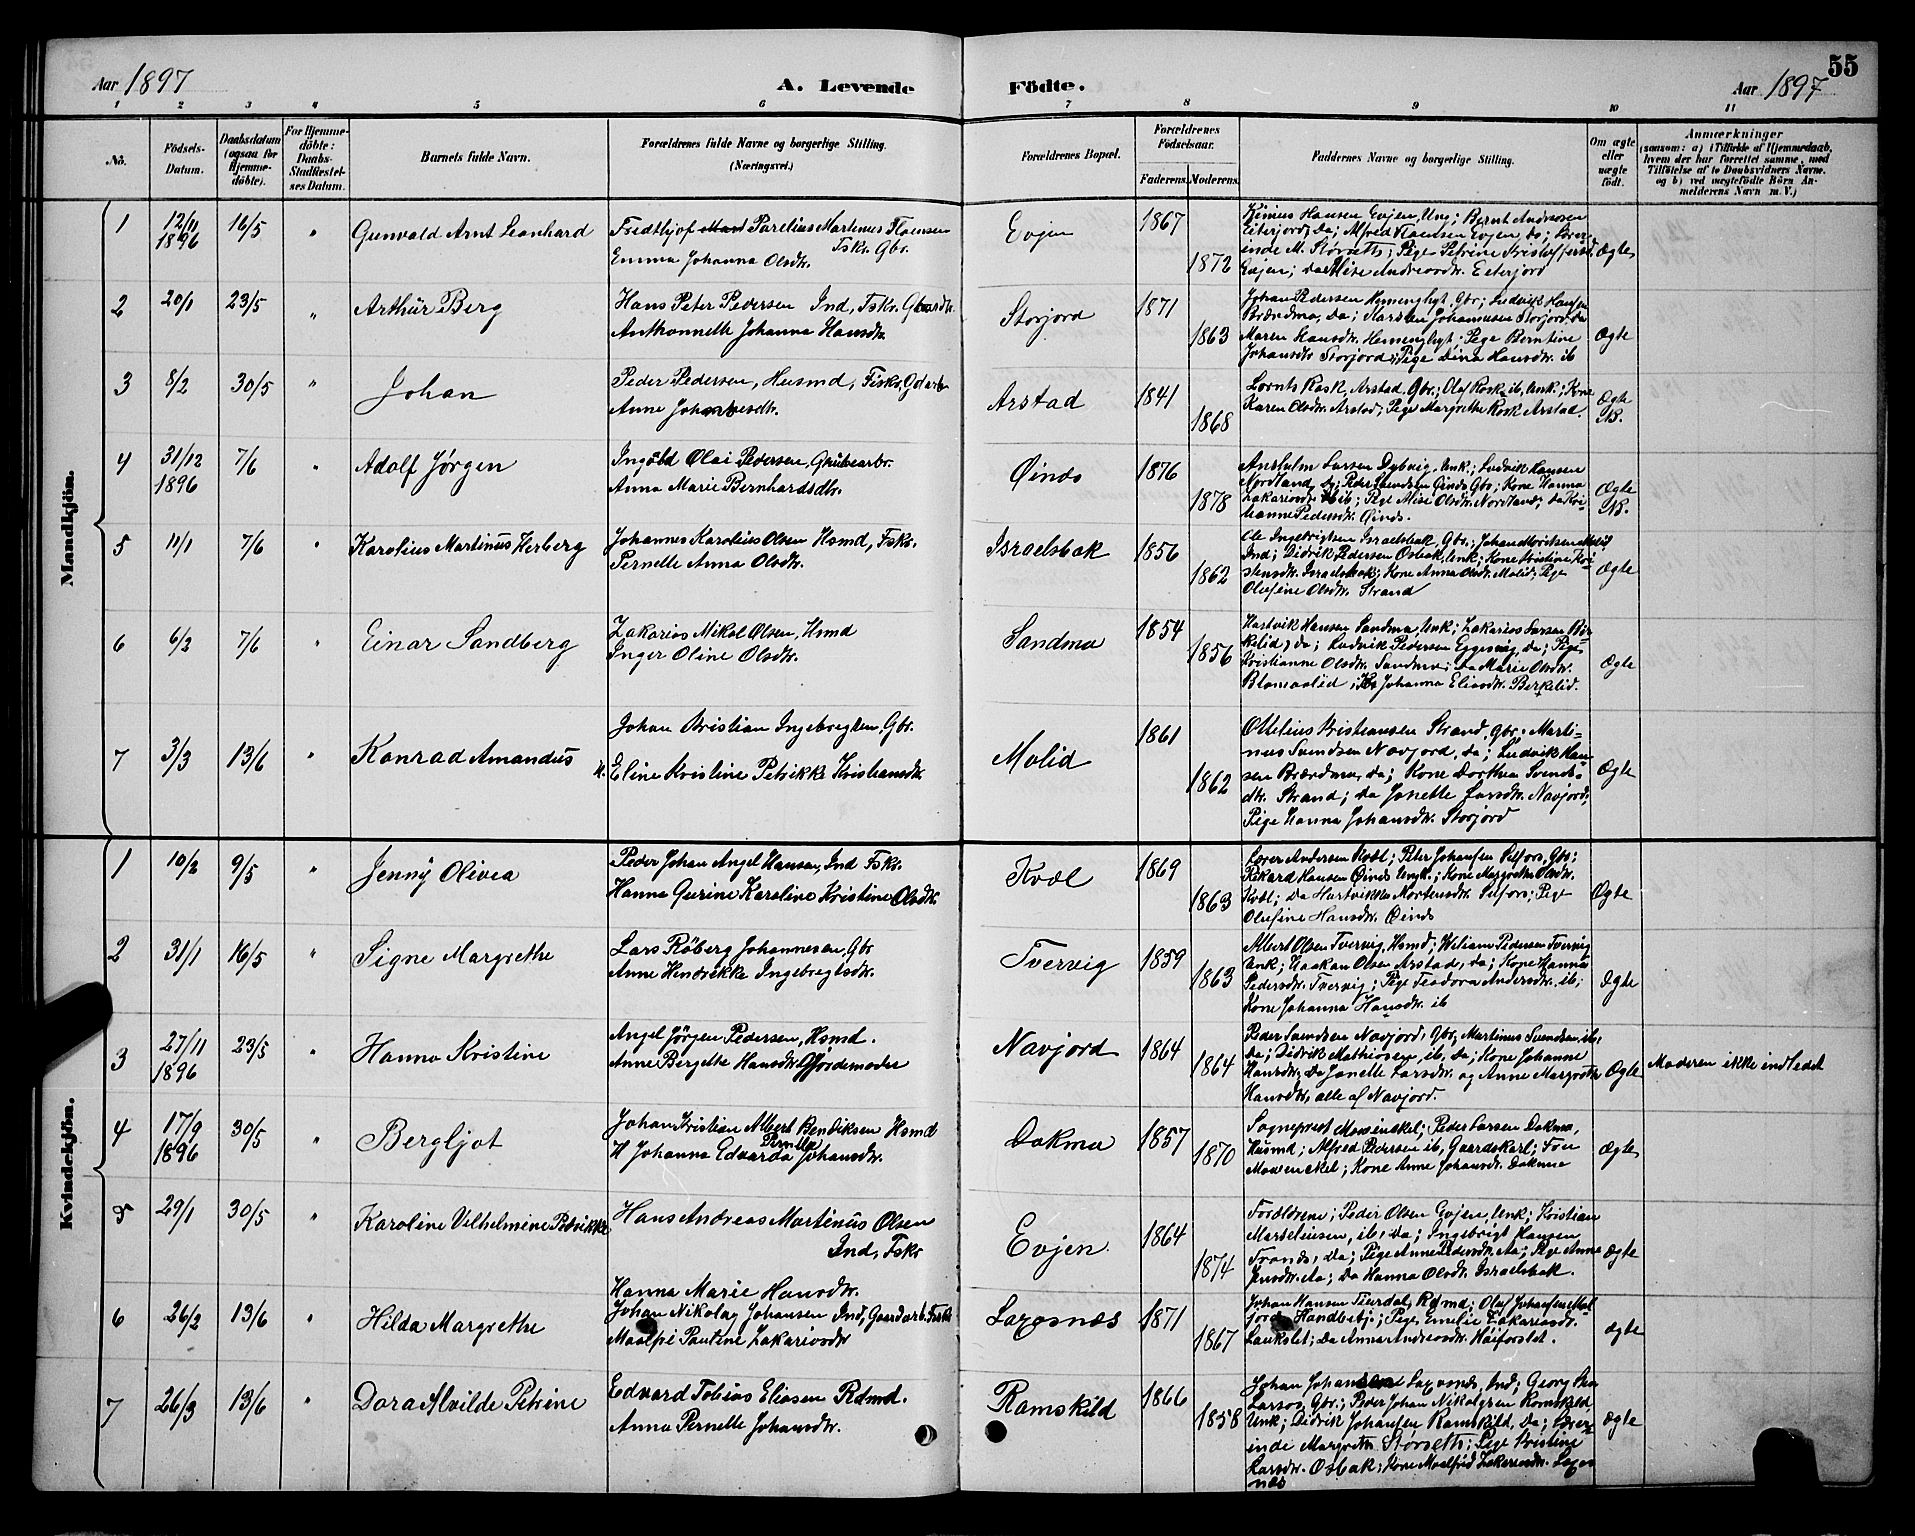 55
Aar 1897
A. Levende
Födte.
Aar 1897
1 2 3 4 5 6 7 8 9 10 11
No.
Födsels-
Datum.
Daabsdatum
(ogsaa for
Hjemme-
döbte).
For Hjemme-
döbte:
Daabs-
Stadfestel-
ses Datum.
Barnets fulde Navn.
Forældrenes fulde Navne og borgerlige Stilling.
(Næringsvei.)
Forældrenes Bopæl.
Forældrenes
Födselsaar.
Faderens. Moderens.
Faddernes Navne og borgerlige Stilling.
Om ægte
eller
uægte
födt.
Anmærkninger
(saasom: a) i Tilfælde af Hjemmedaab,
hvem der har forrettet samme, med
Tilföielse af to Daabsvidners Navne,
og b) ved uægtefödte Börn An-
melderens Navn m. V.)
Mandkjön.
1 12/11 1896 16/5 " Gunvald Arnt Leonhard
Fredthjof Parelius Martenus Hansen
Fskr. Gbr.
Emma Johanna Olsdtr.
Evjen 1867 1872
Evjen, Ung; Bernt Andreasen
Eiterjord, Da; Alfred Hansen Evjen, Do; Lærer-
inde M. Størseth; Pige Petrine
Evjen; Andreasdtr. Eiterjord
Ægte
2 20/1 23/5 " Arthur Berg
Hans Peter Pedersen Ind, Fskr.
Anthonnette Johanna Hansdtr.
Storjord 1871 1863
Johan Pedersen Hemenghyt, Gbr; Ludvik Hansen
Brændmo, Da; Karsten Johannesen Storjord, Da
Maren Hansdtr. Hemenghyt; Pige Berntine
Johansdtr Storjord; Pige Dina Hansdtr. ib
Ægte
3 8/2 30/5 " Johan
Peder Pedersen, Husmd, Fiskr,
Anne Johannesdtr.
Arstad 1841 1868
Lornts Rosk, Arstad, Gbr.; Olaf Rosk ib, Unk.; Kone
Karen Olsdtr. Arstad; Pige Margrethe Rosk Arstad.
Ægte
NB.
4 31/12 1896 7/6 " Adolf Jørgen
Olai Pedersen, Grubearbr.
Anna Marie Bernhardsdtr.
Øinds 1876 1878
Larsen Dybvig, Unk.; Ludvik Hansen
Nordland, Do; Peder Svendsen Øinds Gbr; Kone Hanna
Zakariasdtr. ib; Pige Olsdtr. Nordland; Da
Pedersdtr. Øinds.
Ægte
NB.
5 11/1 7/6 " Karolius Martinus Herberg
Johannes Karolius Olsen Hsmd, Fskr.
Pernelle Anna Olsdtr.
Israelsbak 1856 1862
Ole Ingebrigtsen Israelsbak, Gbr.;
Ind; Didrik Pedersen Osbak, Unk; Kone Kristine Kri-
stensdtr. Israelsbak; Kone Anna Olsdtr. Molid; Pige
Olufine Olsdtr. Strand
Ægte
6 6/2 7/6 " Einar Sandberg
Zakarias Mikal Olsen, Hsmd
Inger Oline Olsdtr.
Sandmo 1854 1856
Hartvik Hansen Sandmo, Unk; Zakarias Larsen Bir-
kelid, Da; Ludvik Pedersen Eggesvig, Da; Pige
Kristianne Olsdtr. Sandmo; Da Marie Olsdtr.
Blomaalid; Johanna Eliasdtr. Berkelid.
Ægte
7 3/3 13/6 " Konrad Amandus
Johan Kristian Ingebregtsen, Gbr.
H. Eline Kristine Petrikke Kristiansdtr
Molid 1861 1862
Ottelius Kristiansen Strand, Gbr. Marti-
nus Svendsen Navjord, Da; Ludvik Han-
sen Brændmo, Da; Kone Dorthea Svends-
dtr. Strand; Da Janette Larsdtr. Navjord;
Pige Hanna Johansdtr. Storjord
Ægte
Kvindekjön.
1 10/2 9/5 " Jenny Olivea
Peder Johan Angel Hansen, Ind Fskr.
Hanna Gurine Karoline Kristine Olsdtr.
Kvæl 1869 1863
Andersen Kvæl; Peter Johansen Selfors, Gbr;
Rikard Hansen Øinds Ungk.; Kone Margrethe Olsdtr.
Kvæl; Da Hartvikka Mortensdtr. Selfors; Pige
Olufine Hansdtr. Øinds
Ægte
2 31/1 16/5 " Signe Margrethe
Lars Røberg Johannesen, Gbr
Anne Hendrikke Ingebregtsdtr.
Tvervig 1859 1863
Albert Olsen Tvervig, Hsmd; Wiliam Pedersen Tvervig
Unk; Haakan Olsen Arstad, Da; Kone Hanna
Pedersdtr. Tvervig; Pige Teodora Andersdtr. ib;
Kone Johanna Hansdtr. ib
Ægte
3 27/11 1896 23/5 " Hanna Kristine
Angel Jørgen Pedersen, Hsmd.
Anne Bergette Hansdtr. Gjordemoder
Navjord 1864 1864
Peder Svendsen Navjord, Gbr, Martinus Svendsen ib,
Da; Didrik Mathiasen, ib, Da; Kone Johanne
Hansdtr; Da Janette Larsdtr. og Anne Margrethe
Hansdtr, alle af Navjord.
Ægte
Moderen ikke indledet
4 17/9 1896 30/5 " Bergljot
Johan Kristian Albert Bendiksen Hsmd
H Johanna Edvarda Pernella Johansdtr.
Dokmo 1857 1870
Sogneprest Mowinckel; Peder Larsen Dokmo,
Husmd; Alfred Pedersen ib, Gaardskarl; Fru
Mowinckel; Kone Anne Johansdtr. Dokmo
Ægte
5 29/1 30/5 " Karoline Vilhelmine Petrikke
Hans Andreas Martinus Olsen
Ind, Fskr
Hanna Marie Hansdtr.
Evjen. 1864 1874
Forældrene; Peder Olsen Evjen, Unk; Kristian
Marseliussen, ib, Da; Ingebrigt Hansen
Da; Pige Anne Pedersdtr. Aa; Pige Anne
Jensdtr. Aa; Da Hanna Olsdtr. Israelsbak.
Ægte
6 26/2 13/6 " Hilda Margrethe
Johan Nikolay Johansen Ind, Gaardarb. Fiskr
Paulina Zakariasdtr
Laxosnæs 1871 1867
Johan Hansen Rdmd; Oluf Johansen
Handbetj.; Pige Emelie Zakariasdtr.
Laukslet; Da Anna Andreasdtr. Høiforslet.
Ægte
7 26/3 13/6 " Dora Alvilde Petrine
Edvard Tobias Eliasen Rdmd.
Anna Pernelle Johansdtr.
Ramskild 1866 1858
Johan Johansen Laxosnæs, Ind; Georg
Larsos, Gbr.; Peder Johan Nikolaisen Ramskild,
Unk; Didrik Johansen Ramskild, Da; Lærer-
inde Margrethe Størseth; Pige Kristine
Larsdtr. Osbak; Kone Zakariasdtr. Laxos-
næs
Ægte